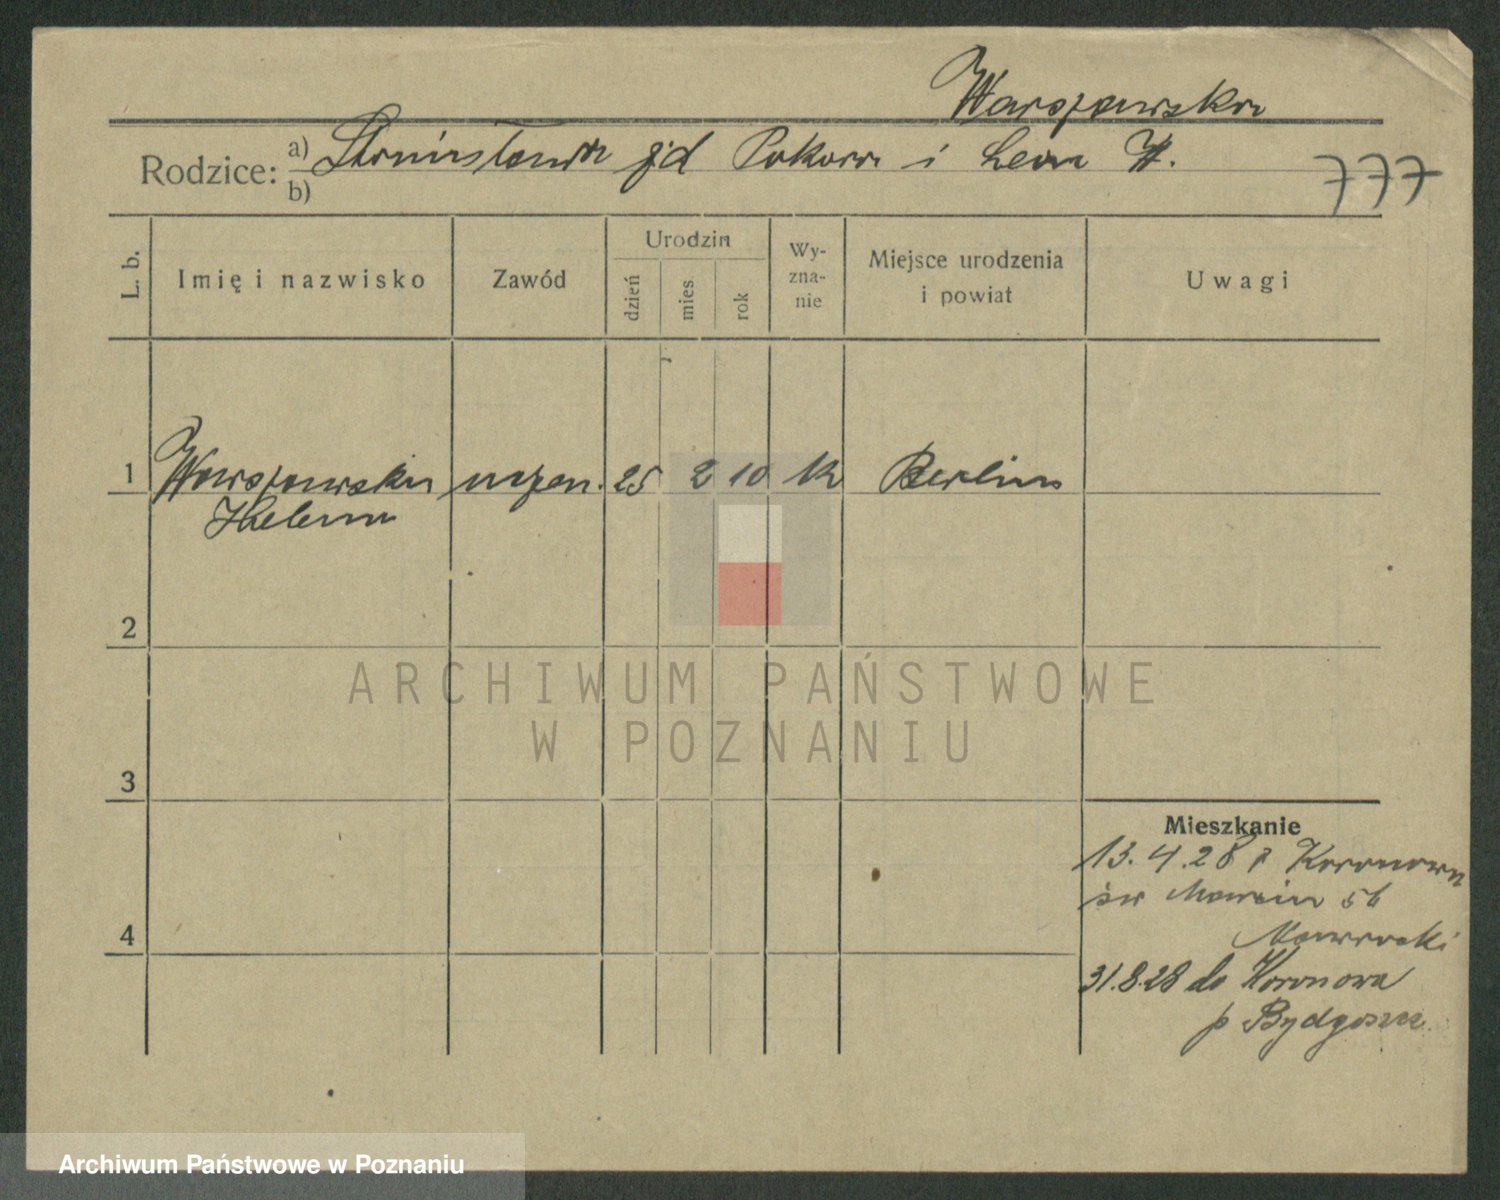 Warszawska
Rodzice: a) Stanisława j/d Pokora i Leon W.
b)
777
L. b.
Imię i nazwisko
Zawód
Urodzin
dzień
mies.
rok
Wy-
zna-
nie
Miejsce urodzenia
i powiat
Uwagi
1 Warszawska uczen. 25 2 10 k Berlin
Helena
2
ARCHIWUM PAŃSTWOWE
W POZNANIU
3
Mieszkanie
13.4.28 z Koronowa
św Marcin 56
4
31.8.28 do Koronowa
p Bydgoszcz
Archiwum Państwowe w Poznaniu